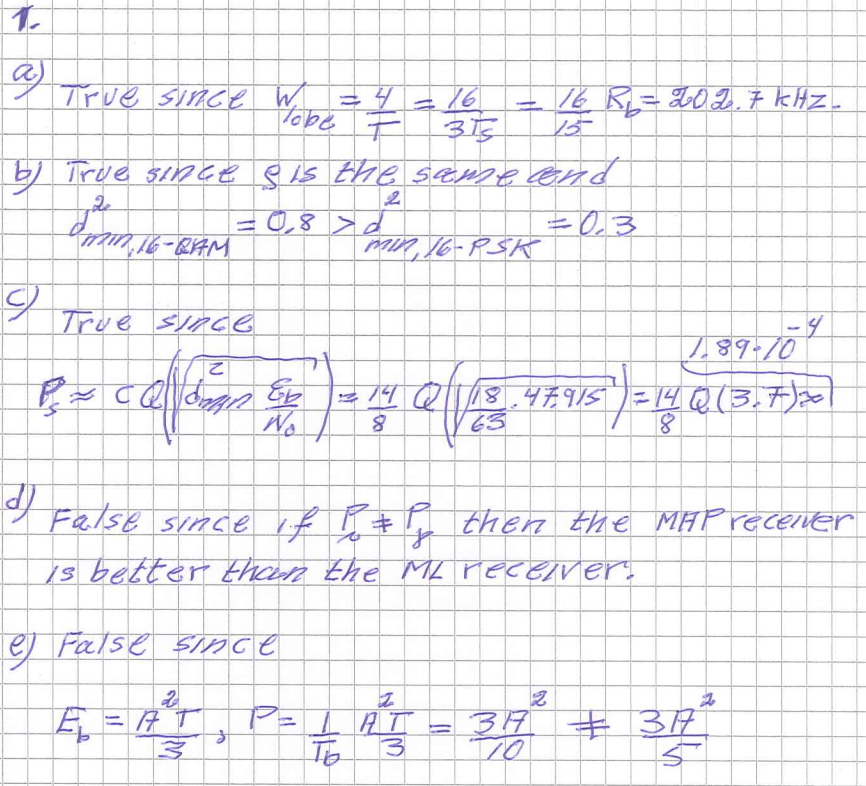 1.
a) True since W_lobe = 4/T = 16/3Ts = 16/15 R_b = 202.7 kHz.
b) True since ρ is the same and
d²_min,16-QAM = 0.8 > d²_min,16-PSK = 0.3
c) True since
P_s ≈ c Q(√(d²_min E_b/N_0)) = 14/8 Q(√(18/63 · 47.915)) = 14/8 Q(3.7) ≈ 1.89·10⁻⁴
d) False since if P_i ≠ P_j then the MAP receiver
is better than the ML receiver.
e) False since
E_b = A²T/3, P = 1/T_b A²T/3 = 3A²/10 ≠ 3A²/5